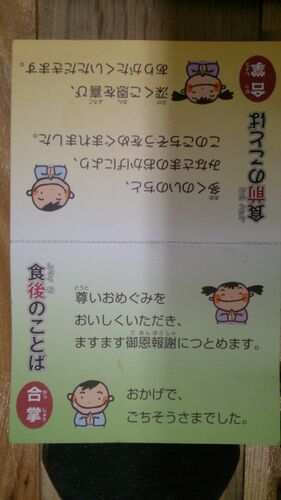 食前のことば
合掌
多くのいのちと、
みなさまのおかげにより、
このごちそうをめぐまれました。
深くご恩を喜び、
ありがたくいただきます。
食後のことば
尊いおめぐみを
おいしくいただき、
ますます御恩報謝につとめます。
おかげで、
ごちそうさまでした。
合掌